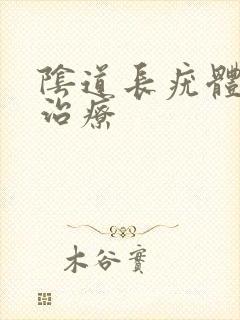 陰道長疣體
治療
木谷實